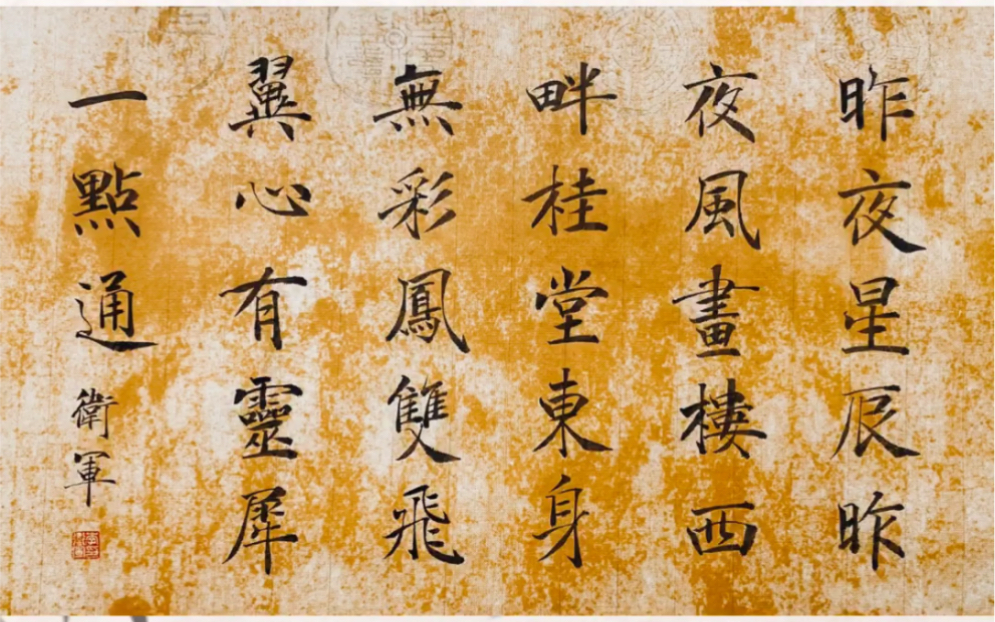 昨夜星辰昨
夜風畫樓西
畔桂堂東身
無彩鳳雙飛
翼心有靈犀
一點通
衛軍